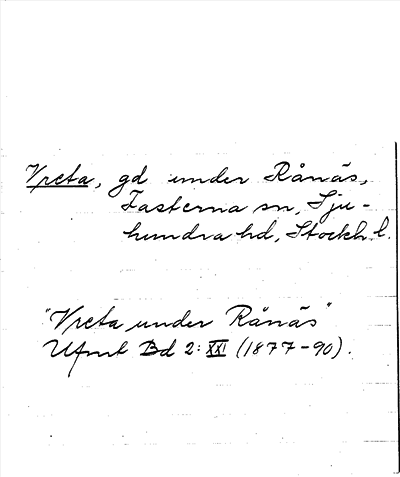 Vreta, gd under Rånäs,
Fasterna sn, Sju-
hundra hd, Stockh. l.
"Vreta under Rånäs"
Ufmt Bd 2: XXI (1877-90).